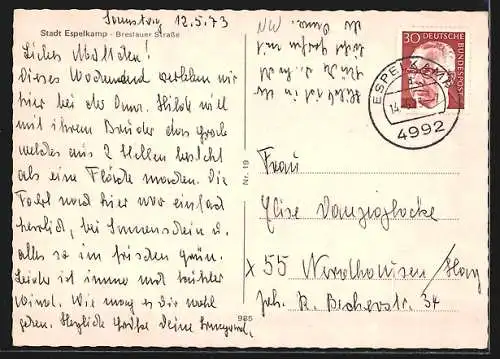 Samstag 12.5.73
Stadt Espelkamp - Breslauer Straße
Liebes
Dieses Wochenend verleben wir
hier bei der Oma. Hilde will
mit ihrem Bruder das Grab
welches aus 2 Stellen besteht
als eine Fläche machen. Die
Fahrt nach hier war einfach
herrlich, bei Sonnenschein u.
alles so im frischen Grün.
Leider ist immer noch kühler
Wind. Wie mag es Dir wohl
gehen. Herzliche Grüße Deine Irmgard,
Nr. 19
985
30
DEUTSCHE BUNDESPOST
ESPELKAMP
14.
4992
Frau
Elise Danzigglocke
x 55 Nordhausen/Harz
Joh. R. Becherstr. 34